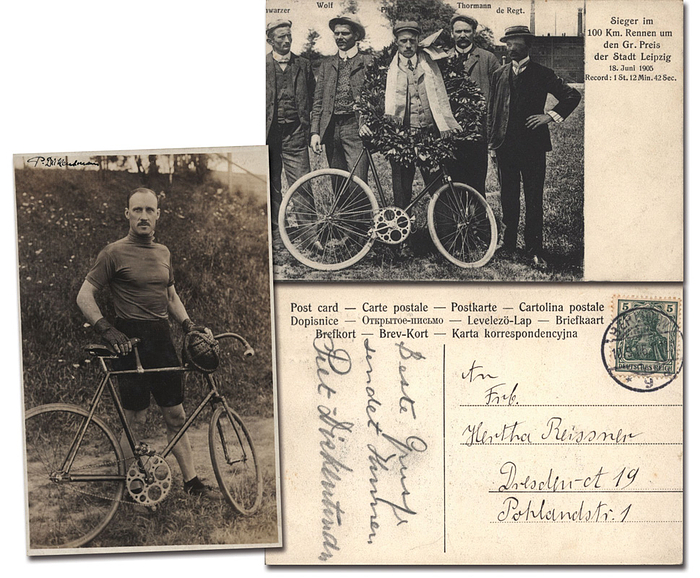 Wolf
Thormann
de Regt.
Sieger im
100 Km. Rennen um
den Gr. Preis
der Stadt Leipzig
18. Juni 1905
Record: 1 St. 12 Min. 42 Sec.
Post card — Carte postale — Postkarte — Cartolina postale
Dopisnice — Открытое-письмо — Levelező-Lap — Briefkaart
Brefkort — Brev-Kort — Karta korrespondencyjna
5 5
DEUTSCHES REICH
9
Beste Grüße
sendet Ihnen
Piet
An
Frk.
Hertha Reissner
Dresden-A 19
Pohlandstr. 1